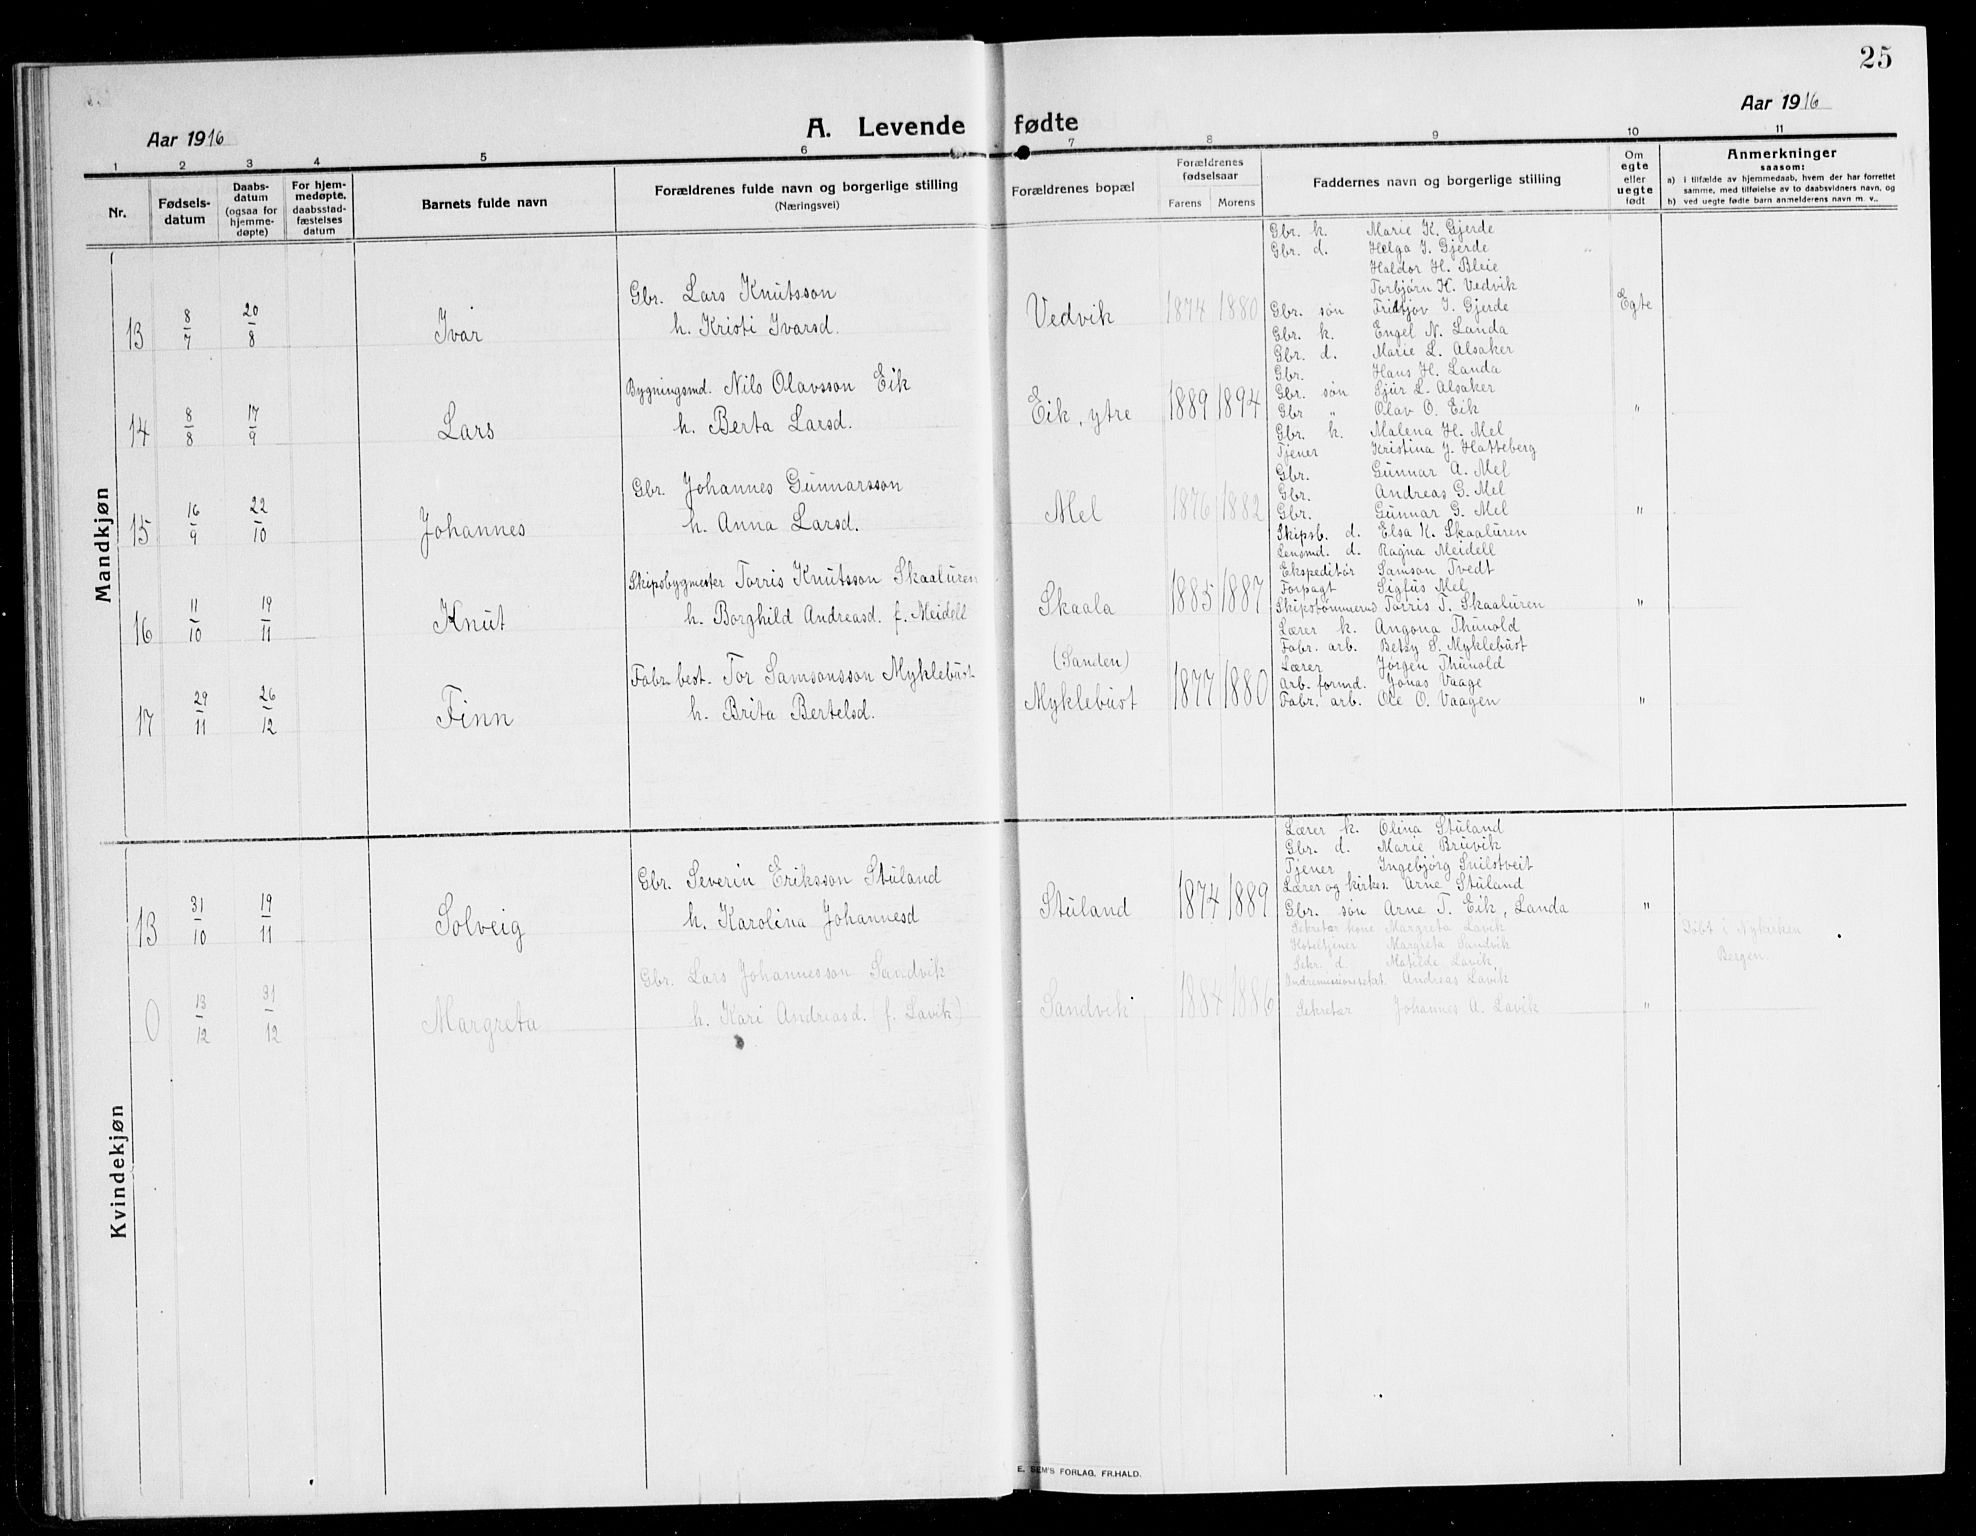 25
Aar 1916
A. Levende fødte
Aar 1916
1 2 3 4 5 6 7 8 9 10 11
Nr.
Fødsels-
datum
Daabs-
datum
(ogsaa for
hjemme-
døpte)
For hjem-
medøpte,
daabsstad-
fæstelses
datum
Barnets fulde navn
Forældrenes fulde navn og borgerlige stilling
(Næringsvei)
Forældrenes bopæl
Forældrenes
fødselsaar
Farens Morens
Faddernes navn og borgerlige stilling
Om
egte
eller
uegte
født
Anmerkninger
saasom:
a) i tilfælde av hjemmedaab, hvem der har forrettet
samme, med tilføielse av to daabsvidners navn, og
b) ved uegte fødte barn anmelderens navn m. v..
Mandkjøn
13 8/7 20/8 Ivar
Gbr. Lars Knutsson
h. Kristi Ivarsd.
Vedvik 1874 1880
Gbr. k. Marie K. Gjerde
Gbr. d. Helga I. Gjerde
Haldor H. Bleie
Torbjørn K. Vedvik
Gbr. søn Fridtjov I. Gjerde
Egte
14 8/8 17/9 Lars
Bygningsmd. Nils Olavsson Eik
h. Berta Larsd.
Eik, ytre 1889 1894
Gbr. k. Engel N. Landa
Gbr. d. Marie L. Alsaker
Gbr. Hans H. Landa
Gbr. søn Sjur L. Alsaker
Gbr " Olav O. Eik
"
15 16/9 22/10 Johannes
Gbr. Johannes Gunnarsson
h. Anna Larsd.
Mel 1876 1882
Gbr. k. Malena H. Mel
Tjener Kristina J. Hatteberg
Gbr. Gunnar A. Mel
Gbr. Andreas G. Mel
Gbr. Gunnar G. Mel
"
16 11/10 19/11 Knut
Skipsbygmester Torris Knutsson Skaaluren
h. Borghild Andreasd. f. Meidell
Skaala 1885 1887
Skipsb. d. Elsa K. Skaaluren
Lensmd. d. Ragna Meidell
Ekspeditør Samson Tvedt
Forpagt Sigfus Mel
Skipstømmermd Torris T. Skaaluren
"
17 29/11 26/12 Finn
Fabr. best. Tor Samsonsson Myklebust
h. Brita Bertelsd.
(Sanden)
Myklebust 1877 1880
Lærer k. Angona Thunold
Fabr. arb. Betsy S. Myklebust
Lærer Jørgen Thunold
Arb. formd. Jonas Vaage
Fabr. arb. Ole O. Vaagen
"
Kvindekjøn
13 31/10 19/11 Solveig
Gbr. Severin Eriksson Stuland
h. Karolina Johannesd
Stuland 1874 1889
Lærer k. Olina Stuland
Gbr. d. Marie Bruvik
Tjener Ingebjørg Snilstveit
Lærer og kirkes. Arne Stuland
Gbr. søn Arne T. Eik, Landa
"
0 13/12 31/12 Margreta
Gbr. Lars Johannesson Sandvik
h. Kari Andreasd. (f. Lavik)
Sandvik 1884 1886
Sekretær kone Margreta Lavik
Hoteltjener Margreta Sandvik
Sekr. d. Matilde Lavik
Andreas Lavik
Sekretær Johannes A. Lavik
"
Døbt i Nykirken
Bergen
E. SEM'S FORLAG, FR.HALD.